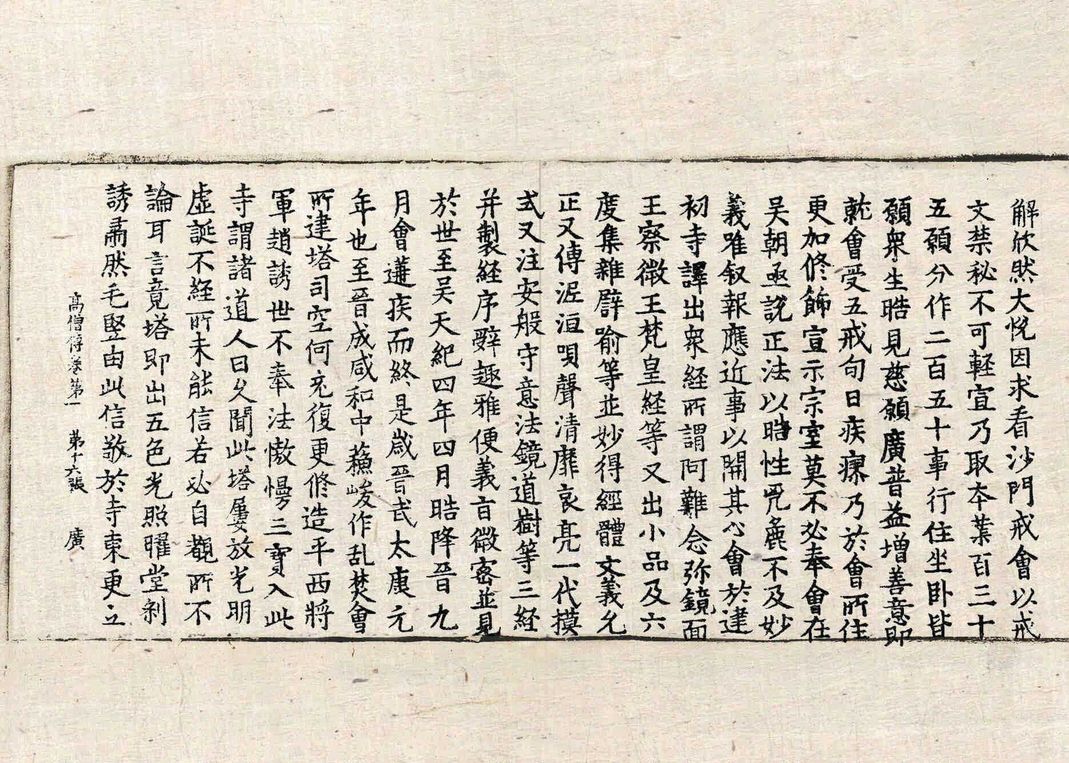 解欣然大悅因求看沙門戒會以戒
文禁秘不可輕宣乃取夲業百三十
五願分作二百五十事行住坐卧皆
願衆生皓見慈願廣普益增善意即
就會受五戒旬日疾瘳乃於會所住
更加修飾宣示宗室莫不必奉會在
吴朝亟說正法以皓性兇麁不及妙
義唯叙報應近事以開其心會於建
初寺譯出衆經所謂阿難念弥鏡面
王察微王梵皇經等又出小品及六
度集雜譬喻等並妙得經體文義允
正又傳泥洹唄聲清靡哀亮一代摸
式又注安般守意法鏡道樹等三經
并製経序辭趣雅便義旨微密並見
於世至吴天紀四年四月皓降晉九
月會遘疾而終是歲晉武太康元
年也至晉成咸和中蘓峻作乱焚會
所建塔司空何充復更修造平西將
軍趙誘世不奉法慠慢三寶入此
寺謂諸道人曰久聞此塔屢放光明
虛誕不經所未能信若必自覩所不
論耳言竟塔即出五色光照曜堂刹
誘肅然毛竪由此信敬於寺東更立
高僧傳卷第一 第十六張 廣